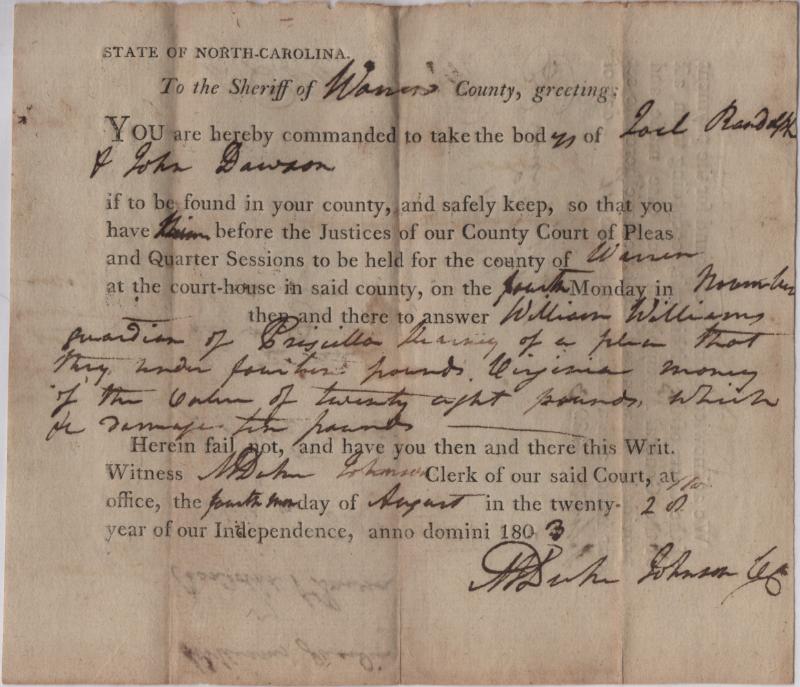 STATE OF NORTH-CAROLINA.
To the Sheriff of Warren County, greeting:
YOU are hereby commanded to take the bodys of Joel Randolph
& John Dawson
if to be found in your county, and safely keep, so that you
have them before the Justices of our County Court of Pleas
and Quarter Sessions to be held for the county of Warren
at the court-house in said county, on the fourth Monday in November
then and there to answer William Williams
guardian of Priscilla Kearney of a plea that
they render fourteen pounds, Virginia money
of the value of twenty eight pounds, which
&c damage ten pounds
Herein fail not, and have you then and there this Writ.
Witness M Duke Johnson Clerk of our said Court, at
office, the fourth monday of August in the twenty- 28
year of our Independence, anno domini 1803
M Duke Johnson CC